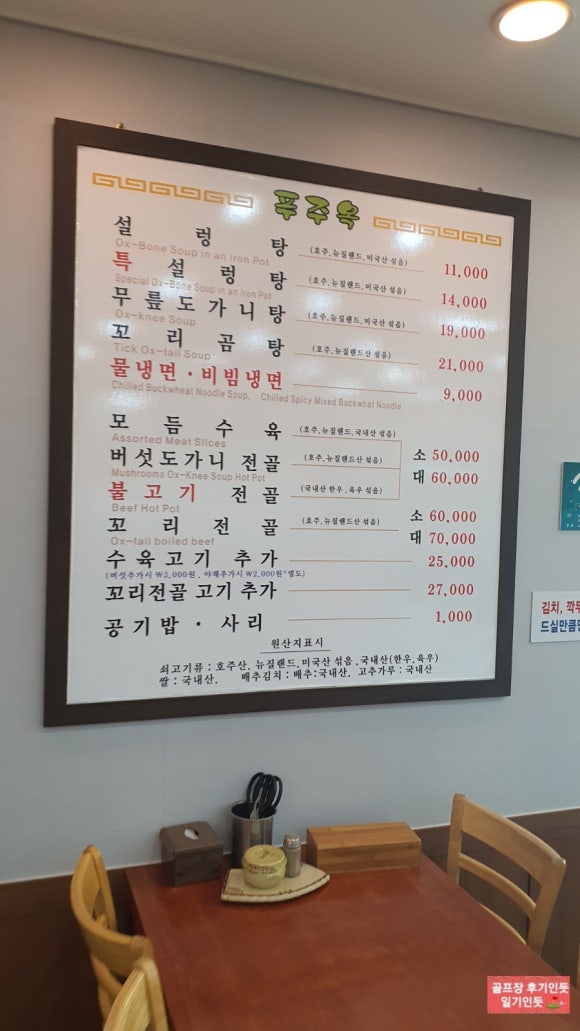 푸주옥
설렁탕 (호주,뉴질랜드,미국산 섞음) 11,000
Ox-Bone Soup in an Iron Pot
특 설렁탕 (호주,뉴질랜드,미국산 섞음) 14,000
Special Ox-Bone Soup in an Iron Pot
무릎도가니탕 (호주,뉴질랜드산 섞음) 19,000
Ox-knee Soup
꼬리곰탕 (호주,뉴질랜드산 섞음) 21,000
Tick Ox-tail Soup
물냉면·비빔냉면 9,000
Chilled Buckwheat Noodle Soup, Chilled Spicy Mixed Buckwhat Noodle
모듬수육 (호주,뉴질랜드,국내산 섞음)
Assorted Meat Slices
소 50,000
버섯도가니 전골 (호주,뉴질랜드산 섞음)
대 60,000
Mushrooms Ox-Knee Soup Hot Pot
불고기 전골 (국내산 한우,육우 섞음)
Beef Hot Pot
소 60,000
꼬리전골 (호주,뉴질랜드산 섞음)
대 70,000
Ox-tail boiled beef
수육고기 추가 25,000
(버섯추가시 ₩3,000원, 야채추가시 ₩2,000원 별도)
꼬리전골 고기 추가 27,000
공기밥 · 사리 1,000
원산지표시
쇠고기류 : 호주산, 뉴질랜드,미국산 섞음 .국내산(한우,육우)
쌀 : 국내산. 배추김치 : 배추:국내산, 고추가루 : 국내산
김치, 깍두
드실만큼만
골프장 후기인듯
일기인듯